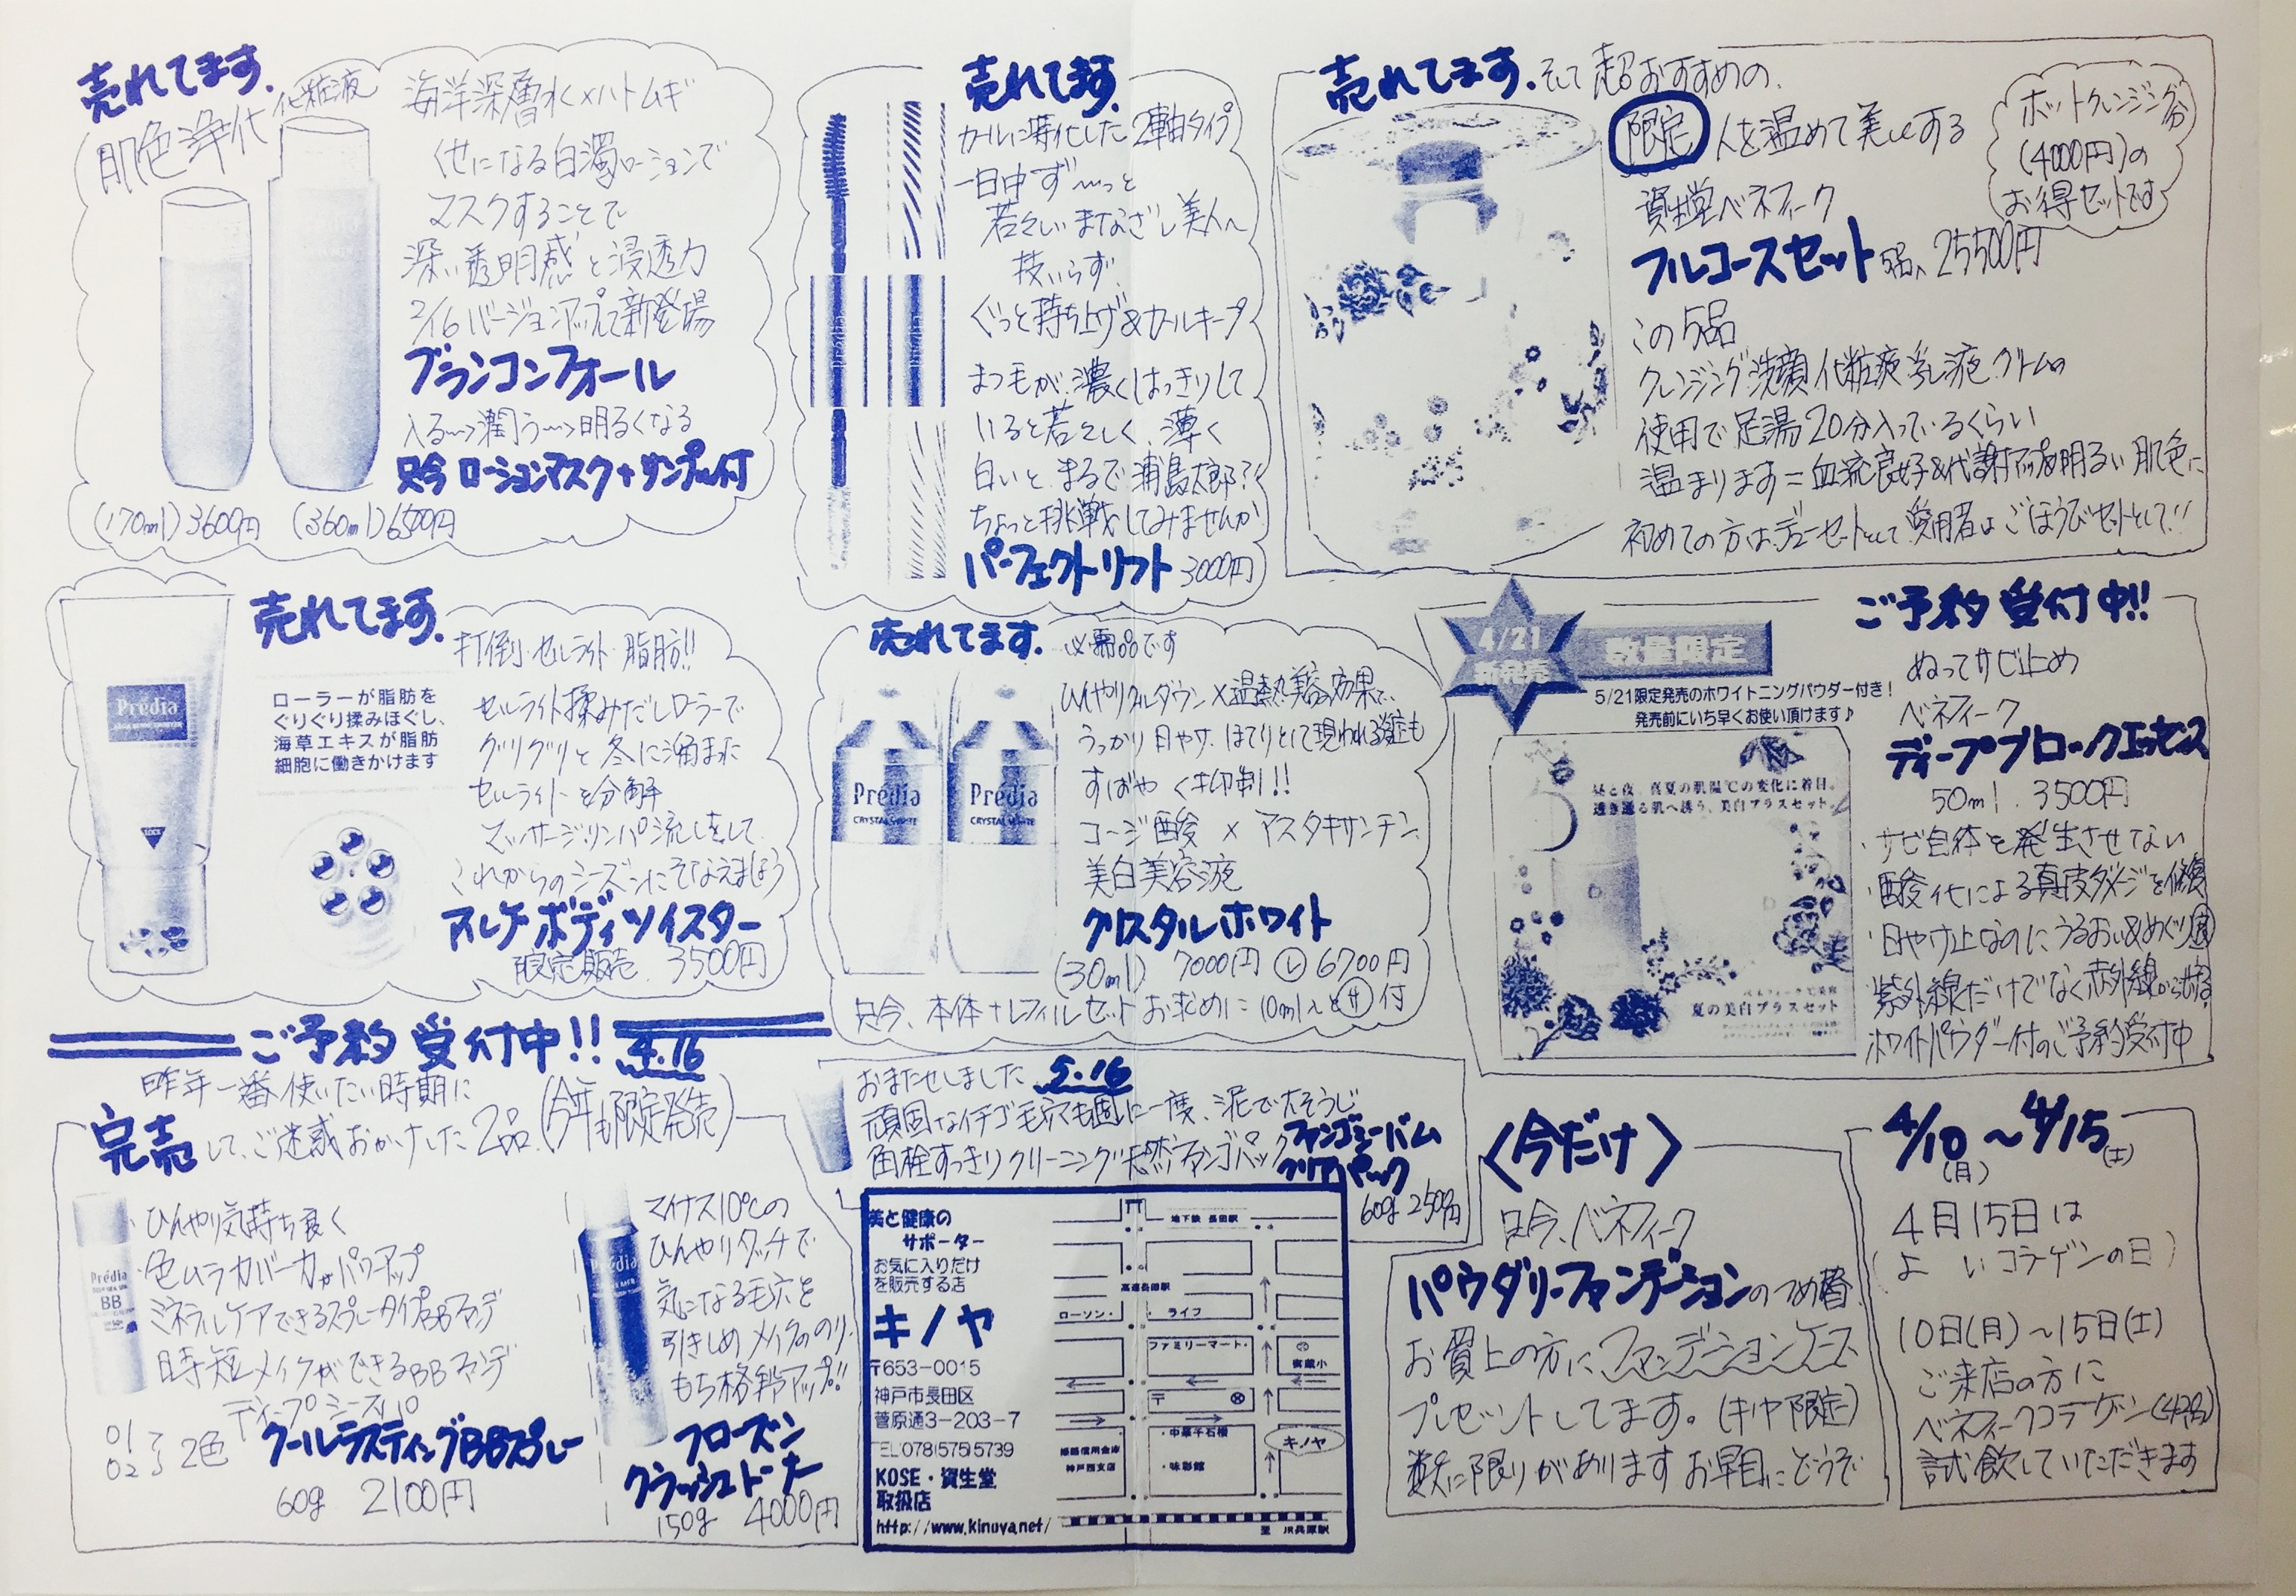 売れてます.
肌色浄化 化粧液
海洋深層水×ハトムギ
くせになる白濁ローションで
マスクすることで
深い透明感と浸透力
2/16 バージョンアップして新登場
ブランコンフォール
入る〜→潤う〜→明るくなる
只今 ローションマスク+サンプル付
(170ml) 3600円 (360ml) 6500円
売れてます.
カールに特化した 2車由タイプ
一日中ず〜っと
若々しい まなざし美人へ
技いらず
ぐっと持ち上げ&カールキープ
まつ毛が、濃くはっきりして
いると若々しく、薄く
白いと、まるで浦島太郎??
ちょっと挑戦してみませんか
パーフェクトリフト 3000円
売れてます. そして超おすすめの
限定 人を温めて美しくする
資生堂ベネフィーク
フルコースセット 5品入 25500円
ホットクレンジング分
(4000円)の
お得セットです
この5品
クレンジング 洗顔 化粧液 乳液 クリームの
使用で足湯20分入っているくらい
温まります=血流良好&代謝アップ&明るい肌色に
初めての方はデビューセットとして 愛用者はごほうびセットとして!!
売れてます.
打倒 セルライト 脂肪!!
ローラーが脂肪を
ぐりぐり揉みほぐし、
海草エキスが脂肪
細胞に働きかけます
Prédia
LOCK
セルライト揉みだしローラーで
グリグリと冬に溜まった
セルライトを分解
マッサージ・リンパ流しをして
これからのシーズンにそなえましょう
アルケ ボディツイスター
限定販売 3500円
売れてます. 必需品です
ひんやりクールダウン×温熱美容効果で、
うっかり日やけ、ほてりとして現われる炎症も
すばやく抑制!!
コージ酸 × アスタキサンチン
美白美容液
クリスタルホワイト
(30ml) 7000円 レ 6700円
只今、本体+レフィルセットお求めに10ml入りと サ 付
Prédia
CRYSTAL WHITE
Prédia
CRYSTAL WHITE
4/21
新発売
数量限定
5/21限定発売のホワイトニングパウダー付き!
発売前にいち早くお使い頂けます♪
昼と夜、真夏の肌温℃の変化に着目。
透き通る肌へ誘う、美白プラスセット。
夏の美白プラスセット
ご予約 受付中!!
ぬってサビ止め
ベネフィーク
ディープブロックエッセンス
50ml 3500円
・サビ自体を発生させてない
・酸化による真皮ダメージを修復
・日やけ止なのにうるおい&めぐり
・紫外線だけでなく赤外線から守る
ホワイトパウダー付のご予約受付中
ご予約 受付中!! 4.16
昨年一番使いたい時期に
完売して、ご迷惑おかけした2品 (今年も限定発売)
Prédia
BB
ひんやり気持ち良く
色ムラカバー力がパワーアップ
ミネラルケアできるスプレータイプBBファンデ
時短メイクができるBBファンデ
01
02
2色
クールラスティングBBスプレー
60g 2100円
マイナス10℃の
ひんやりタッチで
気になる毛穴を
引きしめ メイクののり・
もち格段アップ!!
フローズン
クラッシュトーナー
150g 4000円
おまたせしました 5.16
頑固なイチゴ毛穴も週に一度、泥で大そうじ
角栓すっきりクリーニング 天然ファンゴパック
ファンゴシーバム
クリアパック
60g 2500円
美と健康の
サポーター
お気に入りだけ
を販売する店
キノヤ
〒653-0015
神戸市長田区
菅原通3-203-7
TEL078(575)5739
KOSE・資生堂
取扱店
http://www.kinoya.net/
地下鉄 長田駅
高速長田駅
ローソン・
・ライフ
ファミリーマート・
御蔵小
〒
・中華千石樓
姫路信用金庫
神戸西支店
・味彩館
キノヤ
至 JR兵庫駅
〈今だけ〉
只今、ベネフィーク
パウダリーファンデーションのつめ替
お買上の方にファンデーションケース
プレゼントしてます。(キノヤ限定)
数に限りがあります お早目にどうぞ
4/10(月)〜4/15(土)
4月15日は
(よ いコラーゲンの日)
10日(月)〜15日(土)
ご来店の方に
ベネフィークコラーゲン
試飲していただきます